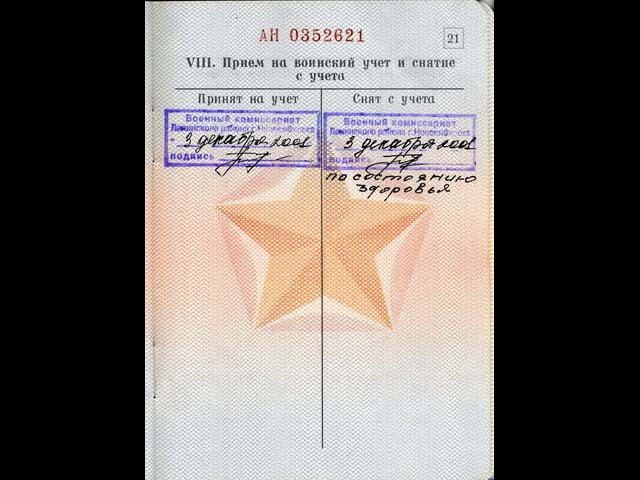 АН 0352621
21
VIII. Прием на воинский учет и снятие
с учета
Принят на учет
Снят с учета
Военный комиссариат
Ленинского района г.Новосибирска
3 декабря 2008
подпись
Военный комиссариат
Ленинского района г.Новосибирска
3 декабря 2008
подпись
по состоянию
здоровья